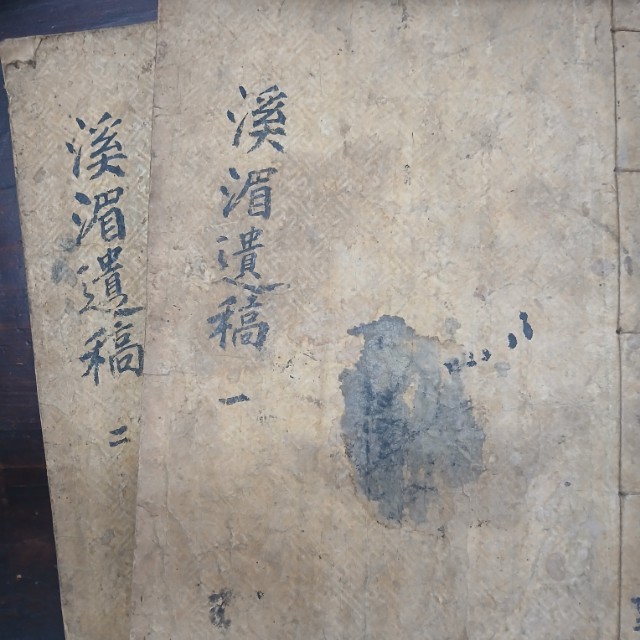 溪湄遺稿 一
溪湄遺稿 二